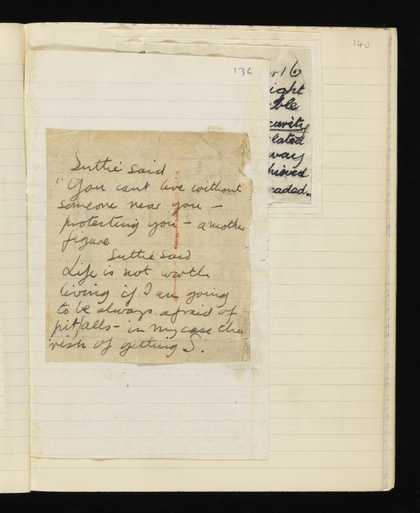 140
136
Suttie said
"You cant live without
someone near you –
protecting you – a mother
figure
Suttie said
Life is not worth
living if I am going
to be always afraid of
pitfalls – in my case the
risk of getting S.
16
ight
ble
curity
lated
way
hieved
raded.